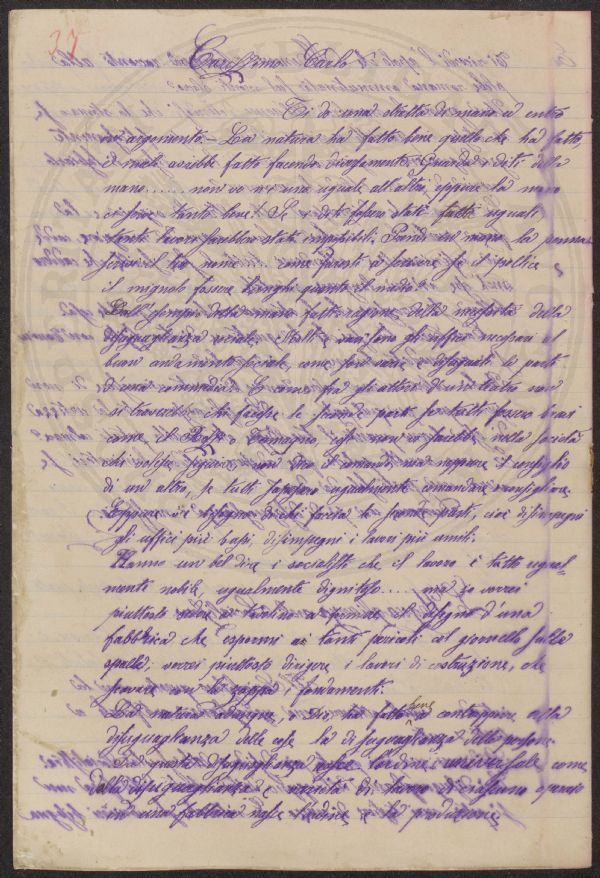 37
Carissimo Carlo
Ti do una stretta di mano ed entro
in argomento. La natura ha fatto bene quello che ha fatto,
e male avrebbe fatto facendo diversamente. Guarda i diti della
mano...... non ve n'è uno uguale all'altro, eppure la mano
ci serve tanto bene! Se i diti fossero stati fatti uguali
tanti lavori sarebbero stati impossibili. Prendi in mano la penna
scrivi il tuo nome... come faresti a scrivere se il pollice
il mignolo fossero lunghi quanto il medio?
Dall'esempio della mano fatti ragione della necessità della
disuguaglianza sociale. Molti e vari sono gli uffici necessari al
buon andamento sociale, come son varie e disuguali le parti
di una commedia. E come fra gli attori di un teatro non
si troverebbe chi facesse le parti se tutti fossero bravi
come il Rossi o Salvini, così non ci sarebbe nella società
chi volesse seguire, non dico il comando, ma neppure il consiglio
di un altro, se tutti sapessero ugualmente comandare e consigliare.
Eppure c'è bisogno di chi faccia le parti, cioè disimpegni
gli uffici più bassi, disimpegni i lavori più umili.
Hanno un bel dire i socialisti che il lavoro è tutto ugual-
mente nobile, ugualmente dignitoso..... ma io vorrei
piuttosto sedere al tavolino a fornire il disegno d'una
fabbrica che espormi ai tanti pericoli col sulle
spalle; vorrei piuttosto dirigere i lavori di costruzione, che
scavare con la zappa i fondamenti.
La natura adunque, o Dio ha fatto bene a contrapporre alla
disuguaglianza delle cose la disuguaglianza delle persone.
Da questa disuguaglianza nasce l'ordine universale come
dalla disuguaglianza e varietà di lavoro di ciascun operaio
in una fabbrica nasce l'ordine e la produzione.